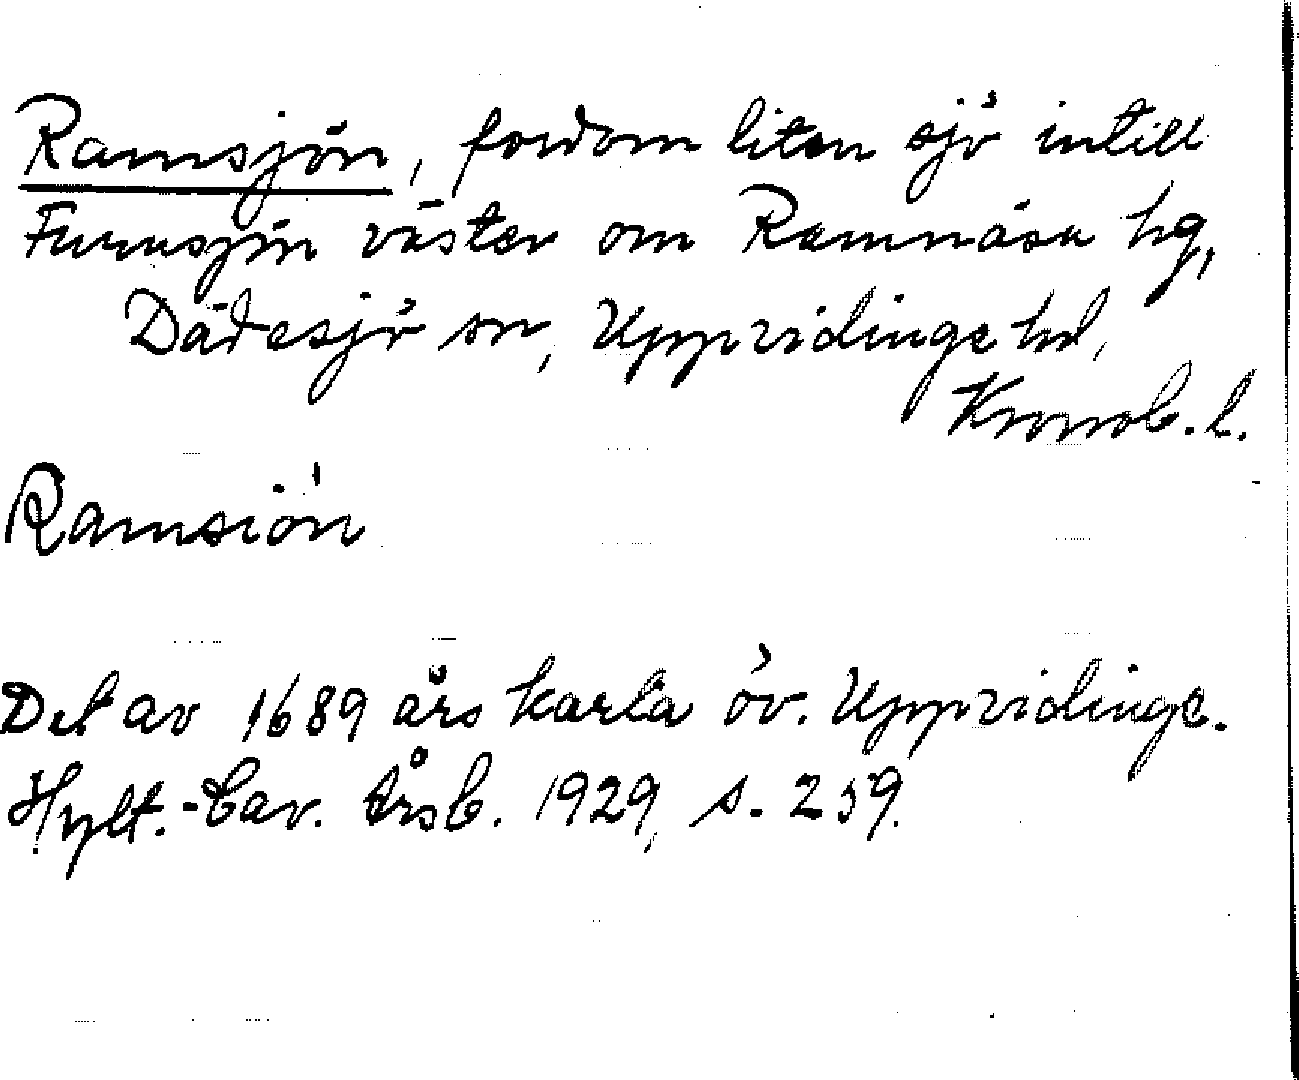 Ramsjön, fordom liten sjö intill
Furusjön väster om Ramnåsa hg,
Dädesjö sn, Uppvidinge hd,
Kronob. l.
Ramsiön
Det av 1689 års karta öv. Uppvidinge.
Hylt.-Cav. Årsb. 1929, s. 259.